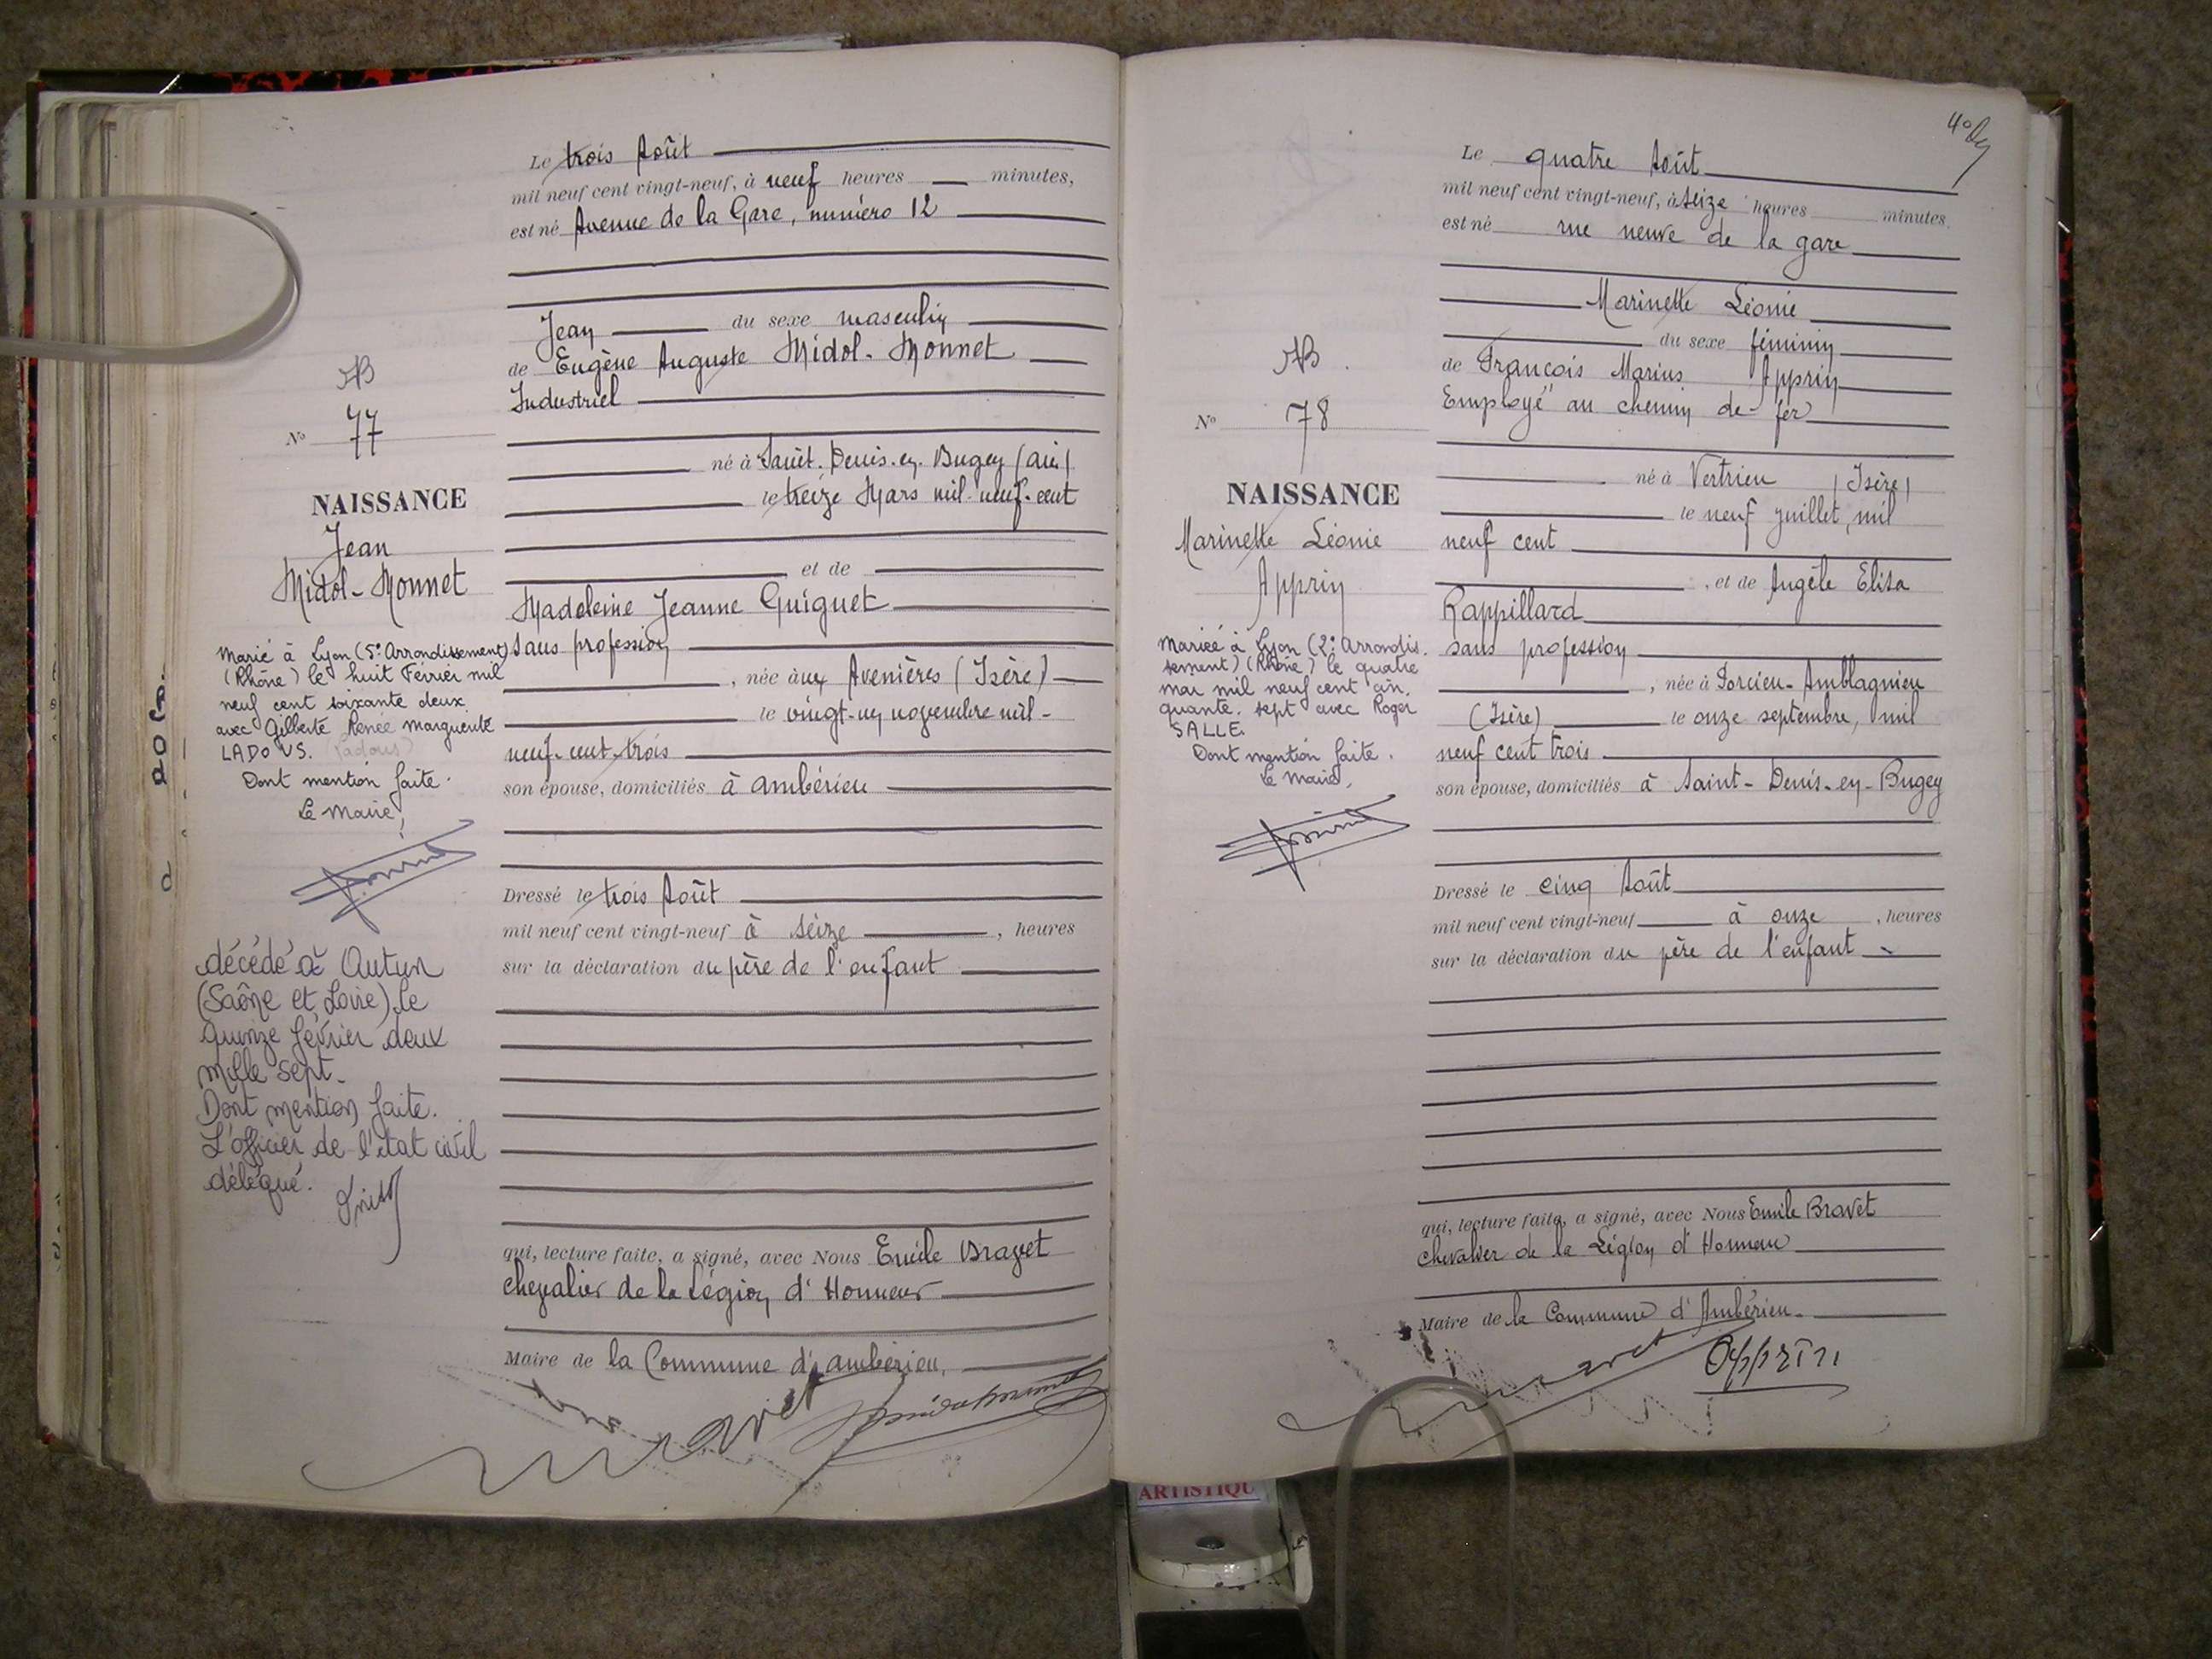 Le trois Août
mil neuf cent vingt-neuf, à neuf heures — minutes,
est né Avenue de la Gare, numéro 12
Jean du sexe masculin
de Eugène Auguste Midol-Monnet
Industriel
né à Saint-Denis-en-Bugey (Ain)
le treize Mars mil-neuf-cent
et de
Madeleine Jeanne Guiguet
sans profession
, née aux Avenières (Isère)
le vingt-un novembre mil-
neuf-cent-trois
son épouse, domiciliés à Ambérieu
Dressé le trois Août
mil neuf cent vingt-neuf à seize , heures
sur la déclaration du père de l'enfant
qui, lecture faite, a signé, avec Nous Emile Bravet
chevalier de la Légion d'Honneur
Maire de la Commune d'Ambérieu.
N° 77
NAISSANCE
Jean
Midol-Monnet
Marié à Lyon (5e Arrondissement)
(Rhône) le huit Février mil
neuf cent soixante deux
avec Gilberte Renée Marguerite
LADOUS. (Ladous)
Dont mention faite.
Le Maire,
décédé à Autun
(Saône et Loire) le
quinze février deux
mille sept.
Dont mention faite.
L'officier de l'état civil
délégué.
Le quatre Août
mil neuf cent vingt-neuf, à seize heures minutes.
est né rue neuve de la gare
Marinette Léonie
du sexe féminin
de François Marius Apprin
Employé au chemin de fer
né à Vertrieu (Isère)
le neuf juillet, mil
neuf cent
, et de Angèle Elisa
Rappillard
sans profession
, née à Porcieu-Amblagnieu
(Isère) le onze septembre, mil
neuf cent trois
son épouse, domiciliés à Saint-Denis-en-Bugey
Dressé le cinq Août
mil neuf cent vingt-neuf à onze , heures
sur la déclaration du père de l'enfant
qui, lecture faite, a signé, avec Nous Emile Bravet
chevalier de la Légion d'Honneur
Maire de la Commune d'Ambérieu.
Apprin
N° 78
NAISSANCE
Marinette Léonie
Apprin
Mariée à Lyon (2e Arrondis.
sement) (Rhône) le quatre
mai mil neuf cent cin.
quante. sept avec Roger
SALLE.
Dont mention faite.
Le Maire,
ARTISTIQU